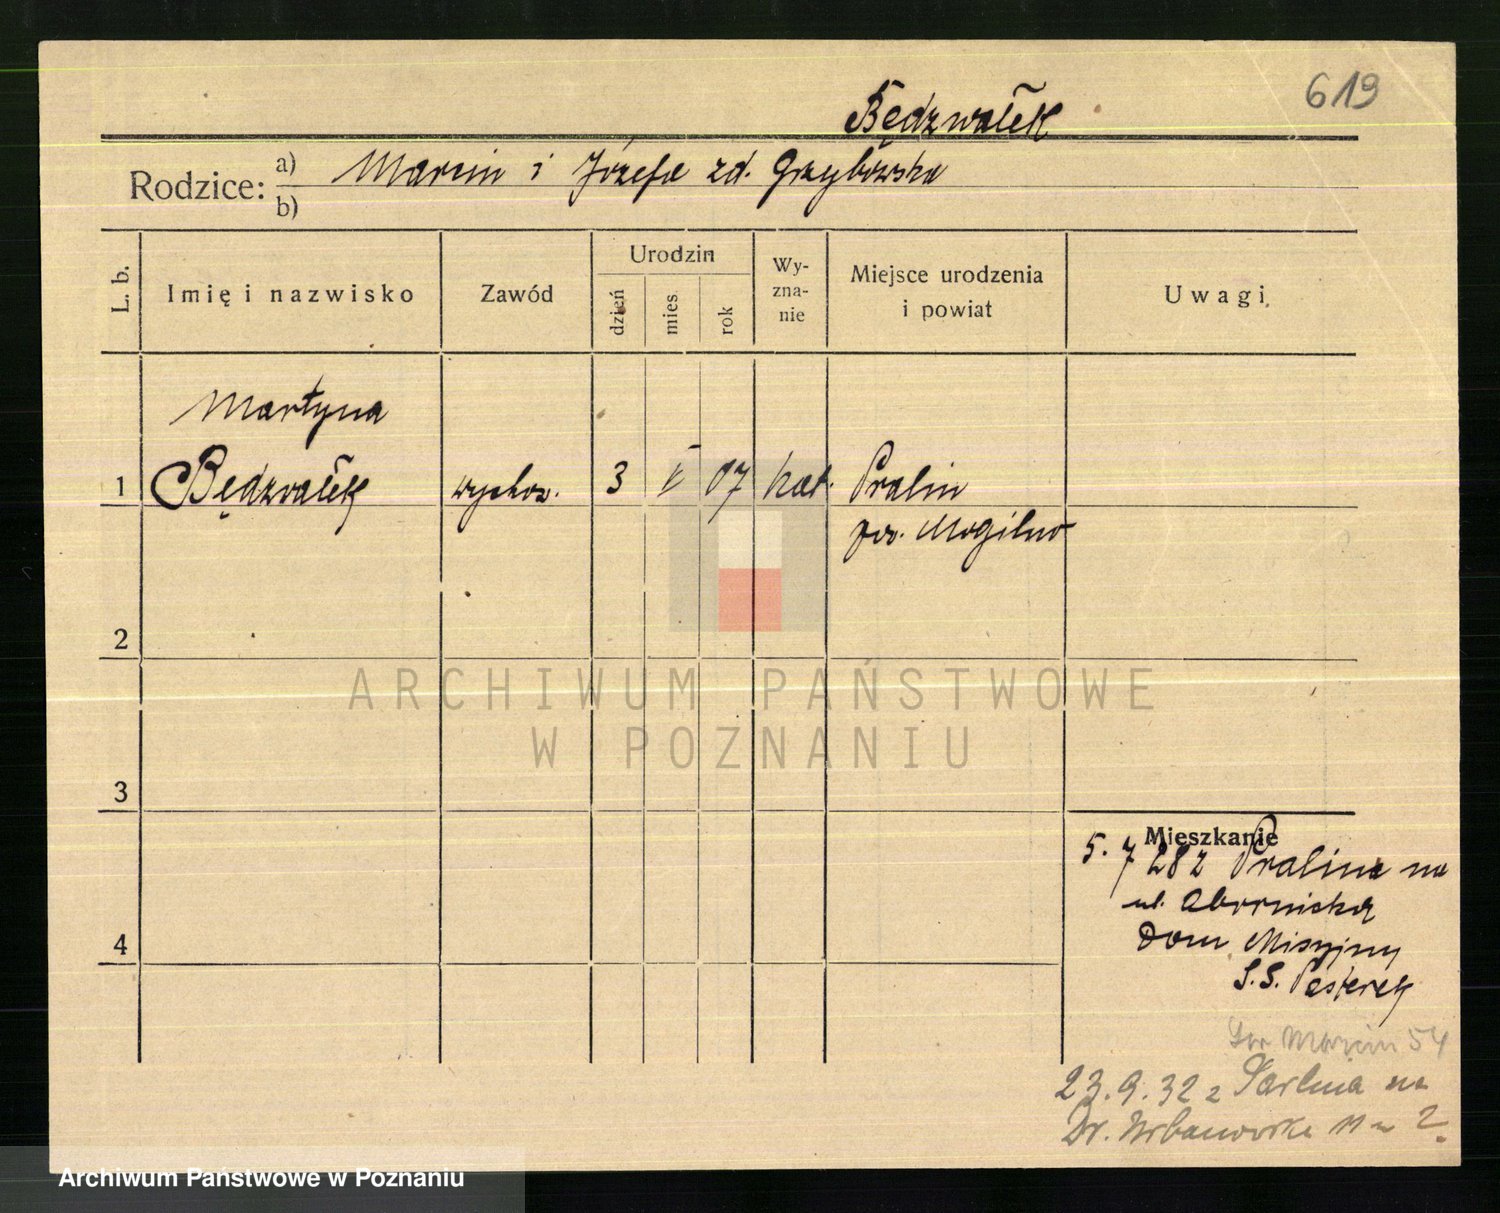 619
Będzwałek
Rodzice: a) Marcin i Józefa zd. Grzybowska
b)
L. b. Imię i nazwisko Zawód Urodzin dzień mies rok Wy-zna-nie Miejsce urodzenia i powiat Uwagi
Martyna
1 Będzwałek wychow. 3 V 07 kat. Pralin
pow. Mogilno
2
ARCHIWUM PAŃSTWOWE
W POZNANIU
3
Mieszkanie
5. 7 28 z Pralina na
ul. Obornicką
4 Dom Misyjny
S.S. Pasterek
Marcin 54
23.9.32 z na
Dr. 11 m 2
Archiwum Państwowe w Poznaniu